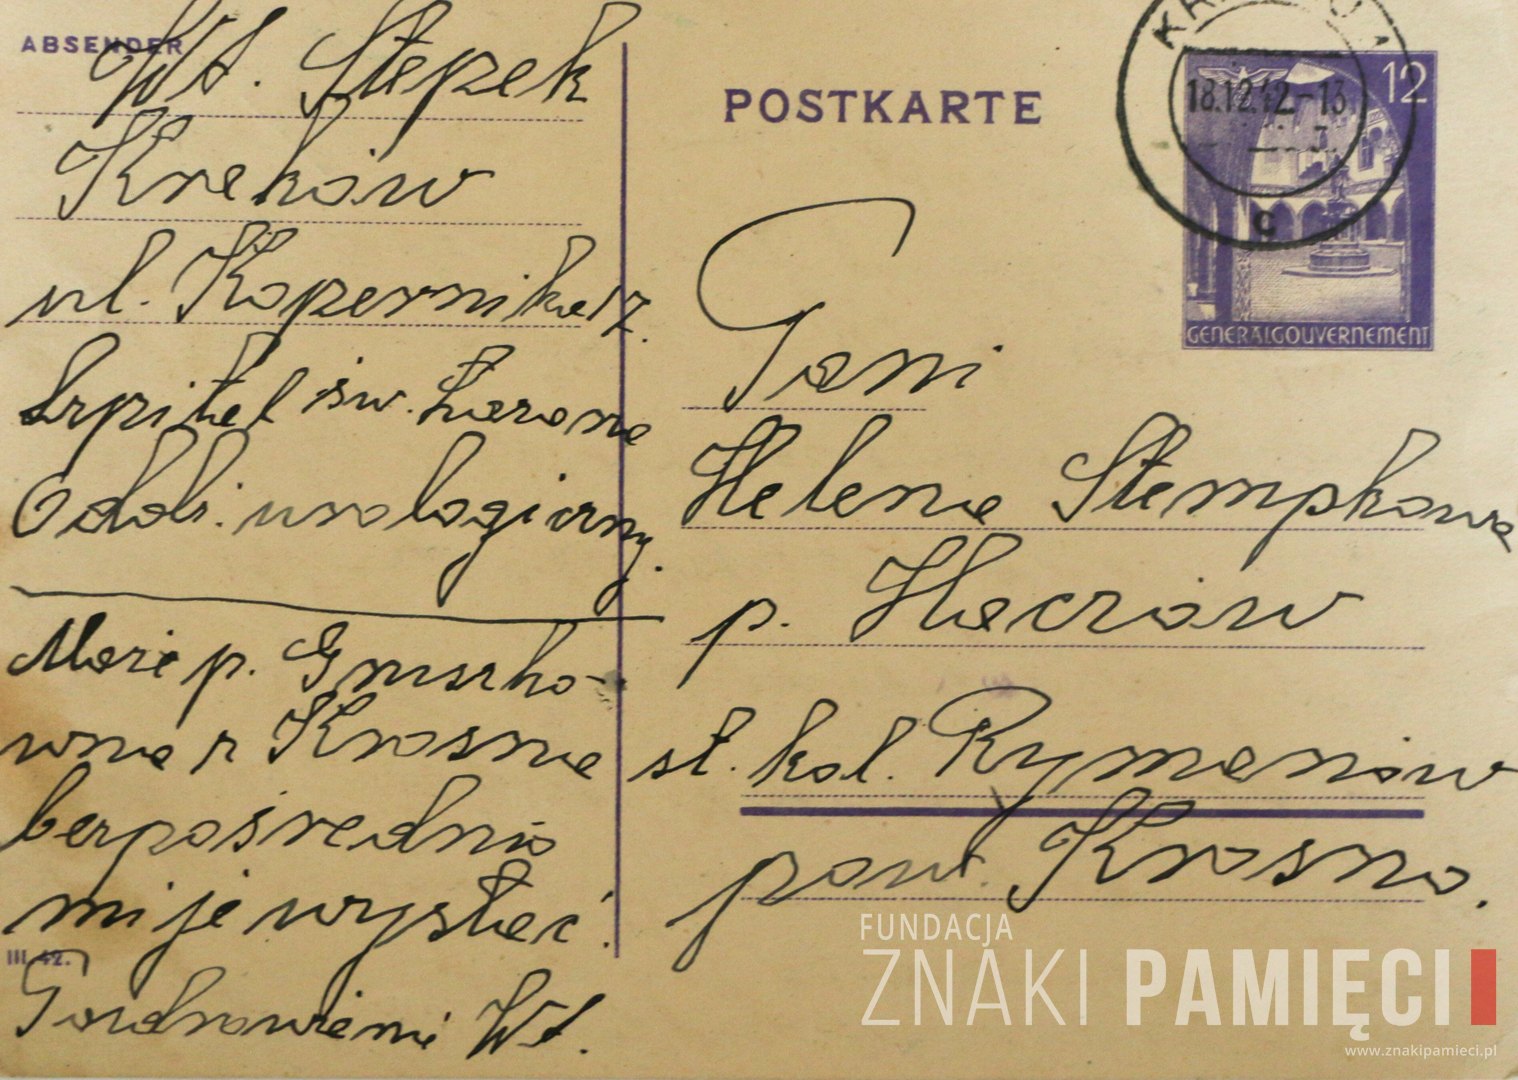 ABSENDER
Wł. Stepek
Kraków
ul. Kopernika 17.
Szpital św. Łazarza
Oddz. urologiczny.
Może p. Gruszko-
wna z Krosna
bezpośrednio
mi je wysłać.
III. 42.
Pozdrowieni Wł.
POSTKARTE
18.12.42.-13
c
12
GENERALGOUVERNEMENT
Pani
Helena Stempkowa
p. Haczów
st. kol. Rymanów
pow. Krosno.
FUNDACJA
ZNAKI PAMIĘCI
www.znakipamieci.pl